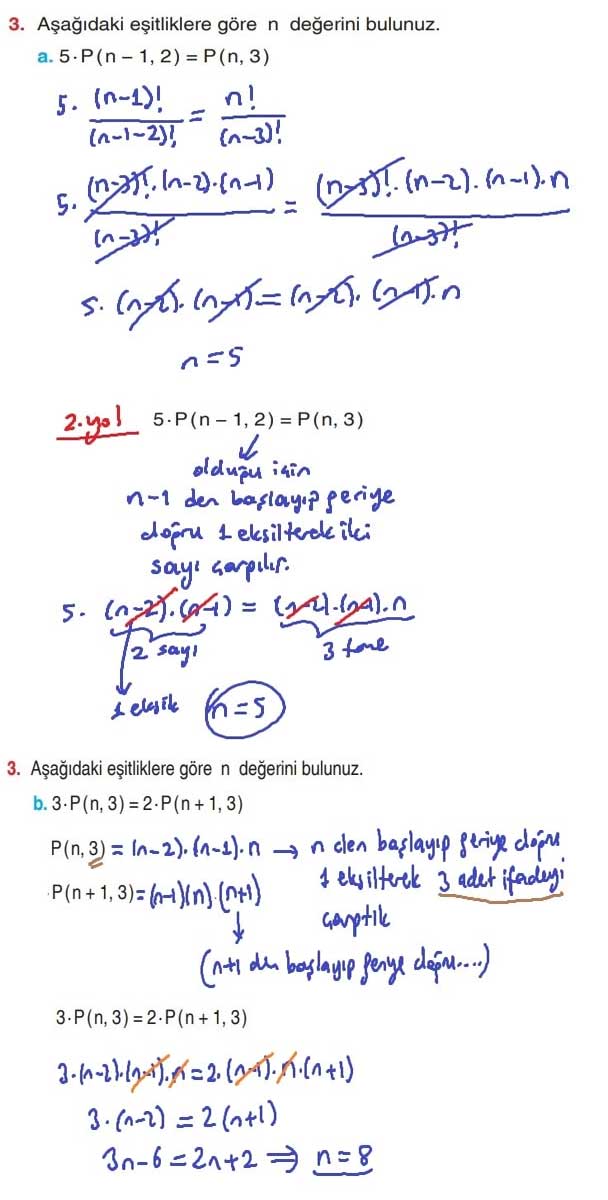 3. Aşağıdaki eşitliklere göre n değerini bulunuz.
a. 5·P(n – 1, 2) = P(n, 3)
5. (n-1)! / (n-1-2)! = n! / (n-3)!
5. (n-3)!.(n-2).(n-1) / (n-3)! = (n-3)!.(n-2).(n-1).n / (n-3)!
5. (n-2). (n-1) = (n-2). (n-1).n
n = 5
2.yol 5·P(n – 1, 2) = P(n, 3)
olduğu için
n-1 den başlayıp geriye
doğru 1 eksilterek iki
sayı çarpılır.
5. (n-2).(n-1) = (n-2).(n-1).n
2 sayı 3 tane
1 eksik n = 5
3. Aşağıdaki eşitliklere göre n değerini bulunuz.
b. 3·P(n, 3) = 2·P(n + 1, 3)
P(n, 3) = (n-2).(n-1).n → n den başlayıp geriye doğru
1 eksilterek 3 adet ifadeyi
P(n + 1, 3) = (n-1)(n).(n+1)
çarptık
(n+1 den başlayıp geriye doğru....)
3·P(n, 3) = 2·P(n + 1, 3)
3.(n-2).(n-1).n = 2.(n-1).n.(n+1)
3.(n-2) = 2(n+1)
3n-6 = 2n+2 ⇒ n = 8